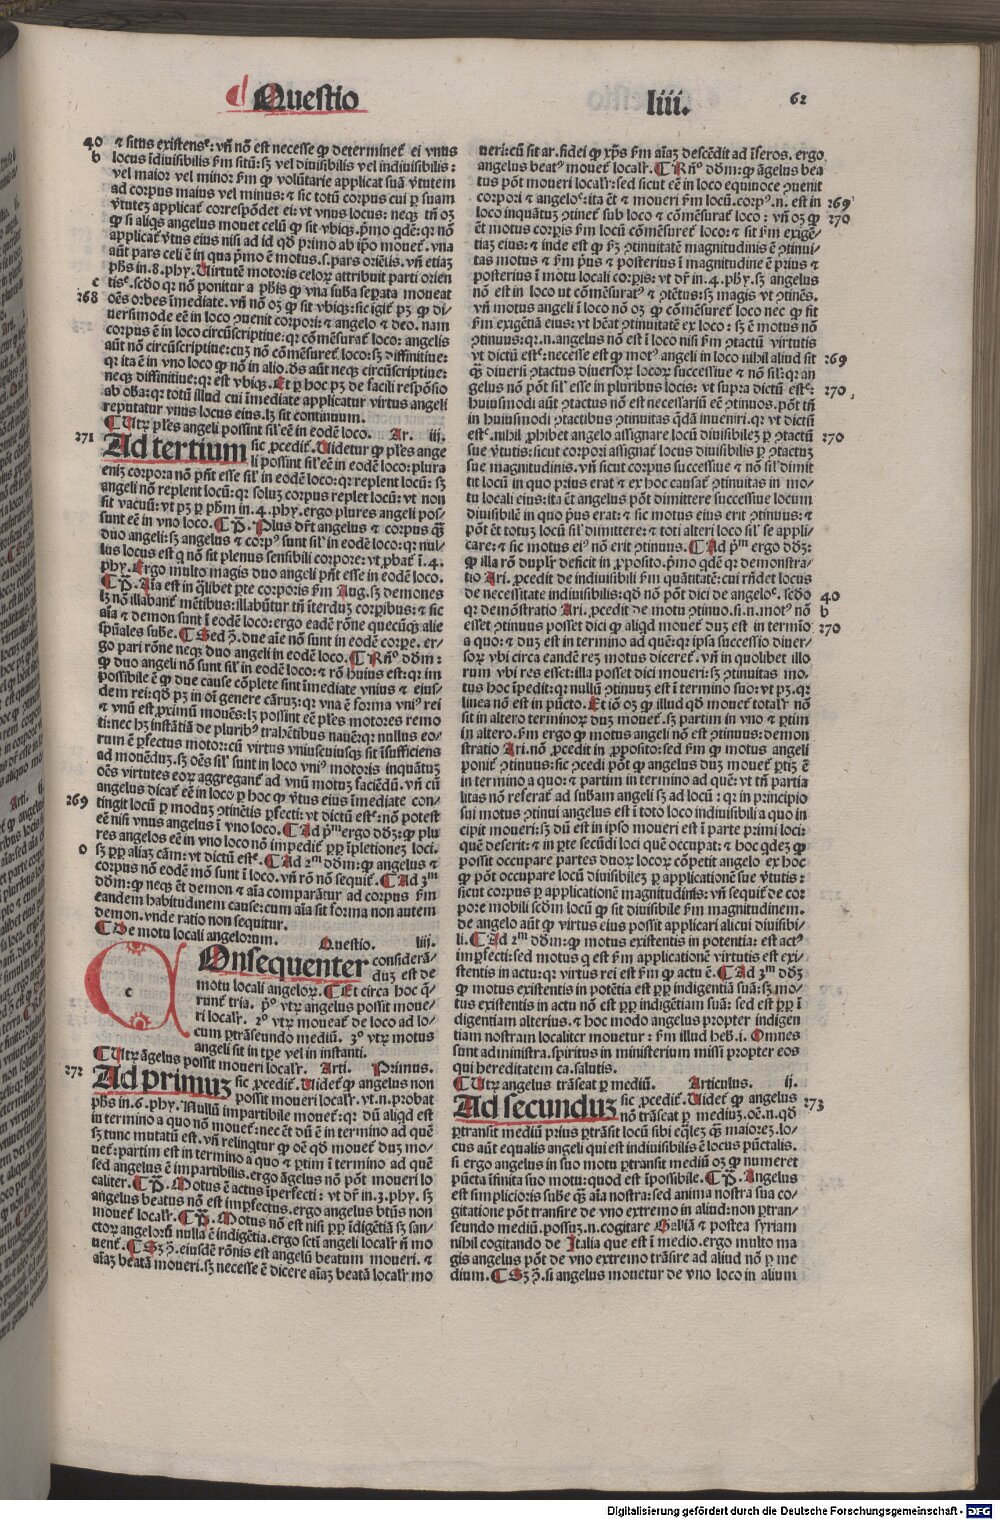 Questio
liii.
62
⁊ situs existens: vñ nõ est necesse ꝙ determinet ei vnus
locus ĩdiuisibilis ẜm sitũ: sꝫ vel diuisibilis vel indiuisibilis:
vel maior vel minor ẜm ꝙ volũtarie applicat suã v̓tutem
ad corpus maius vel minus: ⁊ sic totũ corpus cui ꝑ suam
v̓tuteꝫ applicat᷑ correspõdet ei: vt vnus locus: neqꝫ tñ oꝫ
ꝙ si aliqs angelus mouet celũ ꝙ sit vbiqꝫ. p̃mo qdẽ: qꝛ nõ
applicat᷑ v̓tus eius nisi ad id qđ primo ab ip̃o mouet᷑. vna
phs in.8.phy. Uirtutẽ motoris celoꝝ attribuit parti orien
oẽs orbes ĩmediate. vñ nõ oꝫ ꝙ sit vbiqꝫ: sic igit᷑ pꝫ ꝙ di/
uersimode eẽ in loco ꝯuenit corpori: ⁊ angelo ⁊ deo. nam
corpus ẽ in loco circũscriptiue: qꝛ cõmẽsurat᷑ loco: angelis
aũt nõ circũscriptiue: cuꝫ nõ cõmẽsuret᷑ loco: sꝫ diffinitiue:
qꝛ ita ẽ in vno loco ꝙ nõ in alio. ds̃ aũt neqꝫ circũscriptiue:
neqꝫ diffinitiue: qꝛ est vbiqꝫ. Et ꝑ hoc pꝫ de facili respõsio
ab oba: qꝛ totũ illud cui ĩmediate applicatur virtus angeli
reputatur vnus locus eius. lꝫ sit continuum.
Utꝝ pl̃es angeli possint sil̃ eẽ in eodẽ loco. Ar. iii.
Ad tertium sic ꝓcedit᷑. Uidetur ꝙ pl̃es ange
li possint sil̃ eẽ in eodẽ loco: plura
enĩꝫ corpora nõ pñt esse sil̃ in eodẽ loco: qꝛ replent locũ: sꝫ
angeli nõ replent locũ: qꝛ soluꝫ corpus replet locũ: vt non
sit vacuũ: vt pꝫ ꝑ phm in.4.phy. ergo plures angeli pos/
sunt eẽ in vno loco. P̃. Plus dr̃t angelus ⁊ corpus qꝫ̃
duo angeli: sꝫ angelus ⁊ corpꝰ sunt sil̃ in eodẽ loco: qꝛ nul/
lus locus est q nõ sit plenus sensibili corpore: vt ꝓbat᷑ ĩ.4.
phy. Ergo multo magis duo angeli pñt esse in eodẽ loco.
P̃. Aĩa est in q̃libet ꝑte corporis ẜm Aug. sꝫ demones
lꝫ nõ illabant᷑ mẽtibus: illabũtur tñ ĩterduꝫ corpibus: ⁊ sic
aĩa ⁊ demon sunt ĩ eodẽ loco: ergo eadẽ rõne quecũqꝫ alie
spũales sube. Sed ꝯ̃. due aĩe nõ sunt in eodẽ corꝑe. er/
go pari rõne neqꝫ duo angeli in eodẽ loco. Rñº dõm:
ꝙ duo angeli nõ sunt sil̃ in eodẽ loco: ⁊ rõ huius est: qꝛ im
possibile ẽ ꝙ due cause cõplete sint ĩmediate vnius ⁊ eius/
dem rei: qđ pꝫ in oĩ genere cãruꝫ: qꝛ vna ẽ forma vniꝰ rei
⁊ vnũ est ꝓximũ mouẽs: lꝫ possint eẽ pl̃es motores remo
ti: nec hꝫ instãtiã de pluribꝰ trahẽtibus nauẽ: qꝛ nullus eo/
rum ẽ ꝑfectus motor: cũ virtus vniuscuiusqꝫ sit ĩsufficiens
ad mouẽduꝫ. sꝫ oẽs sil̃ sunt in loco vniꝰ motoris inquãtuꝫ
oẽs virtutes eoꝝ aggregant᷑ ad vnũ motuꝫ faciẽdũ. vñ cũ
angelus dicat᷑ eẽ in loco ꝑ hoc ꝙ v̓tus eius ĩmediate con/
tingit locũ ꝑ moduꝫ ꝯtinẽtis ꝑfecti: vt dictũ estᵉ: nõ potest
eẽ nisi vnus angelus ĩ vno loco. Ad p̃ᵐ ergo dõꝫ: ꝙ plu
res angelos eẽ in vno loco nõ impedit᷑ ꝓꝑ ĩpletioneꝫ loci.
sꝫ ꝓꝑ aliaꝫ cãm: vt dictũ estᵉ. Ad 2ᵐ dõm: ꝙ angelus ⁊
corpus nõ eodẽ mõ sunt ĩ loco. vñ rõ nõ sequit᷑. Ad 3ᵐ
dõm: ꝙ neqꝫ ẽt demon ⁊ aĩa comparãtur ad corpus ẜm
eandem habitudinem cause: cum aĩa sit forma non autem
demon. vnde ratio non sequitur.
De motu locali angelorum. Questio. liii.
Onsequenter considerã/
duꝫ est de
motu locali angeloꝝ. Et circa hoc q̃/
runt᷑ tria. pº vtꝝ angelus possit moue/
ri localr̃. 2º vtꝝ moueat᷑ de loco ad lo/
cum ꝑtrãseundo mediũ. 3º vtꝝ motus
angeli sit in tꝑe vel in instanti.
Utꝝ ãgelus possit moueri localr̃. Arti. Primus.
Ad primuꝫ sic ꝓcedit᷑. Uidet᷑ ꝙ angelus non
possit moueri localr̃. vt.n.probat
phs in.6.phy. Nullũ impartibile mouet᷑: qꝛ dũ aliqd est
in termino a quo nõ mouet᷑: nec ẽt dũ ẽ in termino ad quẽ
sꝫ tunc mutatũ est. vñ relinqtur ꝙ oẽ qđ mouet᷑ duꝫ mo/
uet᷑: partim est in termino a quo ⁊ ꝑtim ĩ termino ad quẽ
sed angelus ẽ impartibilis. ergo ãgelus nõ põt moueri lo
caliter. P̃. Motus ẽ actus ĩperfecti: vt dr̃ in.3.phy. sꝫ
angelus beatus nõ est imꝑfectus. ergo angelus btũs non
mouet᷑ localr̃. P̃. Motus nõ est nisi ꝓꝑ ĩdigẽtiã sꝫ san/
ctoꝝ angeloꝝ nulla ẽ indigẽtia. ergo scti angeli localr̃ ñ mo
uent᷑. Sꝫ ꝯ̃. eiusdẽ rõnis est angelũ beatum moueri. ⁊
aĩaꝫ beatã moueri. sꝫ necesse ẽ dicere aĩaꝫ beatã localr̃ mo
ueri: cũ sit ar. fidei ꝙ xp̃s ẜm aĩaꝫ descẽdit ad ĩferos. ergo
angelus beatꝰ mouet᷑ localr̃. Rñº dõm: ꝙ ãgelus bea
tus põt moueri localr̃: sed sicut eẽ in loco equiuoce ꝯuenit
corpori ⁊ angelo: ita ẽt ⁊ moueri ẜm locũ. corpꝰ.n. est in
loco inquãtuꝫ ꝯtinet᷑ sub loco ⁊ cõmẽsurat᷑ loco: vñ oꝫ ꝙ
ẽt motus corꝑis ẜm locũ cõmẽsuret᷑ loco: ⁊ sit ẜm exigẽ/
tiaꝫ eius: ⁊ inde est ꝙ ẜꝫ ꝯtinuitatẽ magnitudinis ẽ ꝯtinui/
tas motus ⁊ ẜm p̃us ⁊ posterius ĩ magnitudine ẽ prius ⁊
posterius ĩ motu locali corꝑis: vt dr̃ in.4.phy. sꝫ angelus
nõ est in loco ut cõmẽsuratꝰ ⁊ ꝯtẽtus: sꝫ magis vt ꝯtinẽs.
vñ motus angeli ĩ loco nõ oꝫ ꝙ cõmẽsuret᷑ loco nec ꝙ sit
ẜm exigẽtiã eius: vt hẽat ꝯtinuitatẽ ex loco: sꝫ ẽ motus nõ
ꝯtinuus: qꝛ.n. angelus nõ est ĩ loco nisi ẜm ꝯtactũ virtutis
vt dictũ estᵉ: necesse est ꝙ motꝰ angeli in loco nihil aliud sit
qꝫ̃ diuersi ꝯtactus diuersoꝝ locoꝝ successiue ⁊ nõ sil̃: qꝛ an
gelus nõ põt sil̃ esse in pluribus locis: vt supra dictũ estᵉ:
huiusmodi aũt ꝯtactus nõ est necessariũ eẽ ꝯtinuos. põt tñ
in huiusmodi ꝯtactibus ꝯtinuitas q̃dã inueniri. qꝛ vt dictũ
estᵉ. nihil ꝓhibet angelo assignare locũ diuisibileꝫ ꝑ ꝯtactũ
sue v̓tutis: sicut corpori assignat᷑ locus diuisibilis ꝑ ꝯtactuꝫ
sue magnitudinis. vñ sicut corpus successiue ⁊ nõ sil̃ dimit
tit locũ in quo prius erat ⁊ ex hoc causat᷑ ꝯtinuitas in mo/
tu locali eius: ita ẽt angelus põt dimittere successiue locum
diuisibilẽ in quo p̃us erat: ⁊ sic motus eius erit ꝯtinuus: ⁊
põt ẽt totuꝫ locũ sil̃ dimittere: ⁊ toti alteri loco sil̃ se appli/
care: ⁊ sic motus eiꝰ nõ erit ꝯtinuus. Ad p̃ᵐ ergo dõꝫ:
ꝙ illa rõ duplr̃ deficit in ꝓposito. p̃mo qdẽ qꝛ demonstra/
tio Ari. ꝓcedit de indiuisibili ẜm quãtitatẽ: cui rñdet locus
de necessitate indiuisibilis: qđ nõ põt dici de angelo. scđo
qꝛ demõstratio Ari. ꝓcedit de motu ꝯtinuo. si.n. motꝰ nõ
esset ꝯtinuus posset dici ꝙ aliqd mouet᷑ duꝫ est in termĩo
a quo: ⁊ duꝫ est in termino ad quẽ: qꝛ ipsa successio diuer/
soꝝ vbi circa eandẽ reꝫ motus diceret᷑. vñ in quolibet illo
rum vbi res esset: illa posset dici moueri: sꝫ ꝯtinuitas mo/
tus hoc ĩpedit: qꝛ nullũ ꝯtinuuꝫ est ĩ termino suo: vt pꝫ. qꝛ
linea nõ est in pũcto. Et iõ oꝫ ꝙ illud qđ mouet᷑ totalr̃ nõ
sit in altero terminoꝝ duꝫ mouet᷑. sꝫ partim in vno ⁊ ꝑtim
in altero. ẜm ergo ꝙ motus angeli nõ est ꝯtinuus: demon
stratio Ari. nõ ꝓcedit in ꝓposito: sed ẜm ꝙ motus angeli
ponit᷑ ꝯtinuus: sic ꝯcedi põt ꝙ angelus duꝫ mouet᷑ ꝑtiꝫ ẽ
in termino a quo: ⁊ partim in termino ad quẽ: vt tñ partia
litas nõ referat᷑ ad subam angeli sꝫ ad locũ: qꝛ in principio
sui motus ꝯtinui angelus est ĩ toto loco indiuisibili a quo in
cipit moueri: sꝫ dũ est in ipso moueri est ĩ parte primi loci:
quẽ deserit: ⁊ in ꝑte secũdi loci quẽ occupat: ⁊ hoc qdeꝫ ꝙ
possit occupare partes duoꝝ locoꝝ cõpetit angelo ex hoc
ꝙ põt occupare locũ diuisibileꝫ ꝑ applicationẽ sue v̓tutis:
sicut corpus ꝑ applicationẽ magnitudinis: vñ sequit᷑ de cor
pore mobili scđm locũ ꝙ sit diuisibile ẜm magnitudinem.
de angelo aũt ꝙ virtus eius possit applicari alicui diuisibi/
li. Ad 2ᵐ dõm: ꝙ motus existentis in potentia: est actꝰ
imꝑfecti: sed motus q est ẜm applicationẽ virtutis est exi/
stentis in actu: qꝛ virtus rei est ẜm ꝙ actu ẽ. Ad 3ᵐ dõꝫ
ꝙ motus existentis in potẽtia est ꝓꝑ indigentiã suã: sꝫ mo/
tus existentis in actu nõ est ꝓꝑ indigẽtiam suã: sed est ꝓꝑ ĩ
digentiam alterius. ⁊ hoc modo angelus propter indigen
tiam nostram localiter mouetur: ẜm illud heb.i. Omnes
sunt administra. spiritus in ministerium missi propter eos
qui hereditatem ca. salutis.
Utꝝ angelus trãseat ꝑ mediũ. Articulus. ii.
Ad secunduꝫ sic ꝓcedit᷑. Uidet᷑ ꝙ angelus
nõ trãseat ꝑ mediuꝫ. oẽ.n. qđ
ꝑtransit mediũ prius ꝑtrãsit locũ sibi eq̃leꝫ qꝫ̃ maioreꝫ. lo/
cus aũt equalis angeli qui est indiuisibilis ẽ locus pũctalis.
si ergo angelus in suo motu ꝑtransit mediũ oꝫ ꝙ numeret
pũcta ĩfinita suo motu: quod est ĩpossibile. P̃. Angelus
est simplicioris sube qꝫ̃ aĩa nostra: sed anima nostra sua co/
gitatione põt transire de vno extremo in aliud: non ꝑtran/
seundo mediũ. possuꝫ.n. cogitare Galliã ⁊ postea syriam
nihil cogitando de Italia que est ĩ medio. ergo multo ma
gis angelus põt de vno extremo trãsire ad aliud nõ ꝑ me
dium. Sꝫ ꝯ̃. si angelus mouetur de vno loco in alium
40
b
c
268
271
269
o
c
272
269
270
269
270
270
40
b
270
273
Digitalisierung gefördert durch die Deutsche Forschungsgemeinschaft - DFG